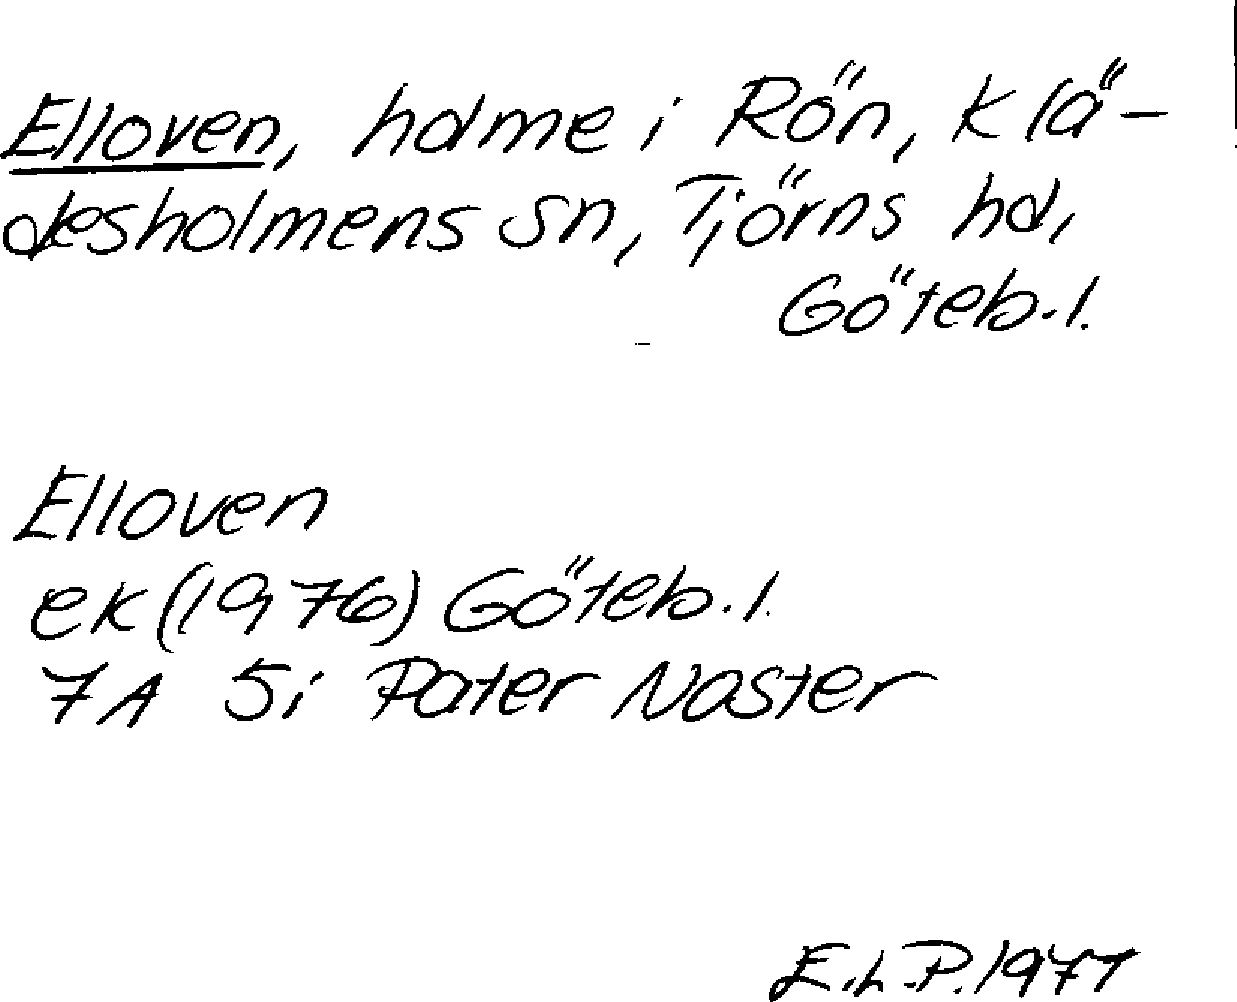 Elloven, holme i Rön, Klä-
desholmens sn, Tjörns hd,
Göteb.l.
Elloven
ek (1976) Göteb.l.
7A 5i Pater Noster
E.L.P. 1977